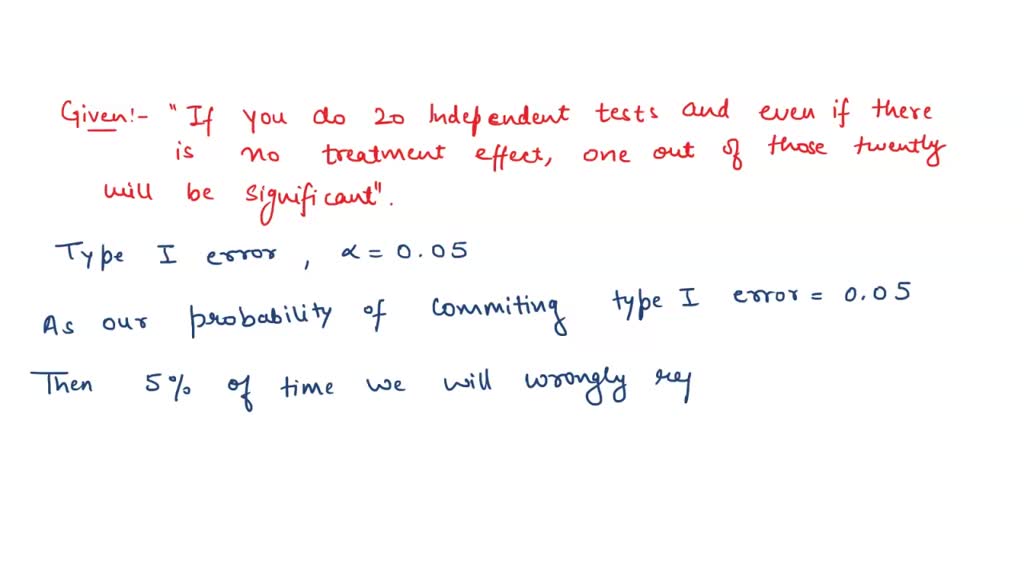 Given:- "If you do 20 Independent tests and even if there
is no treatment effect, one out of those twently
will be significant".
Type I error, α = 0.05
As our probability of commiting type I error = 0.05
Then 5% of time we will wrongly rej